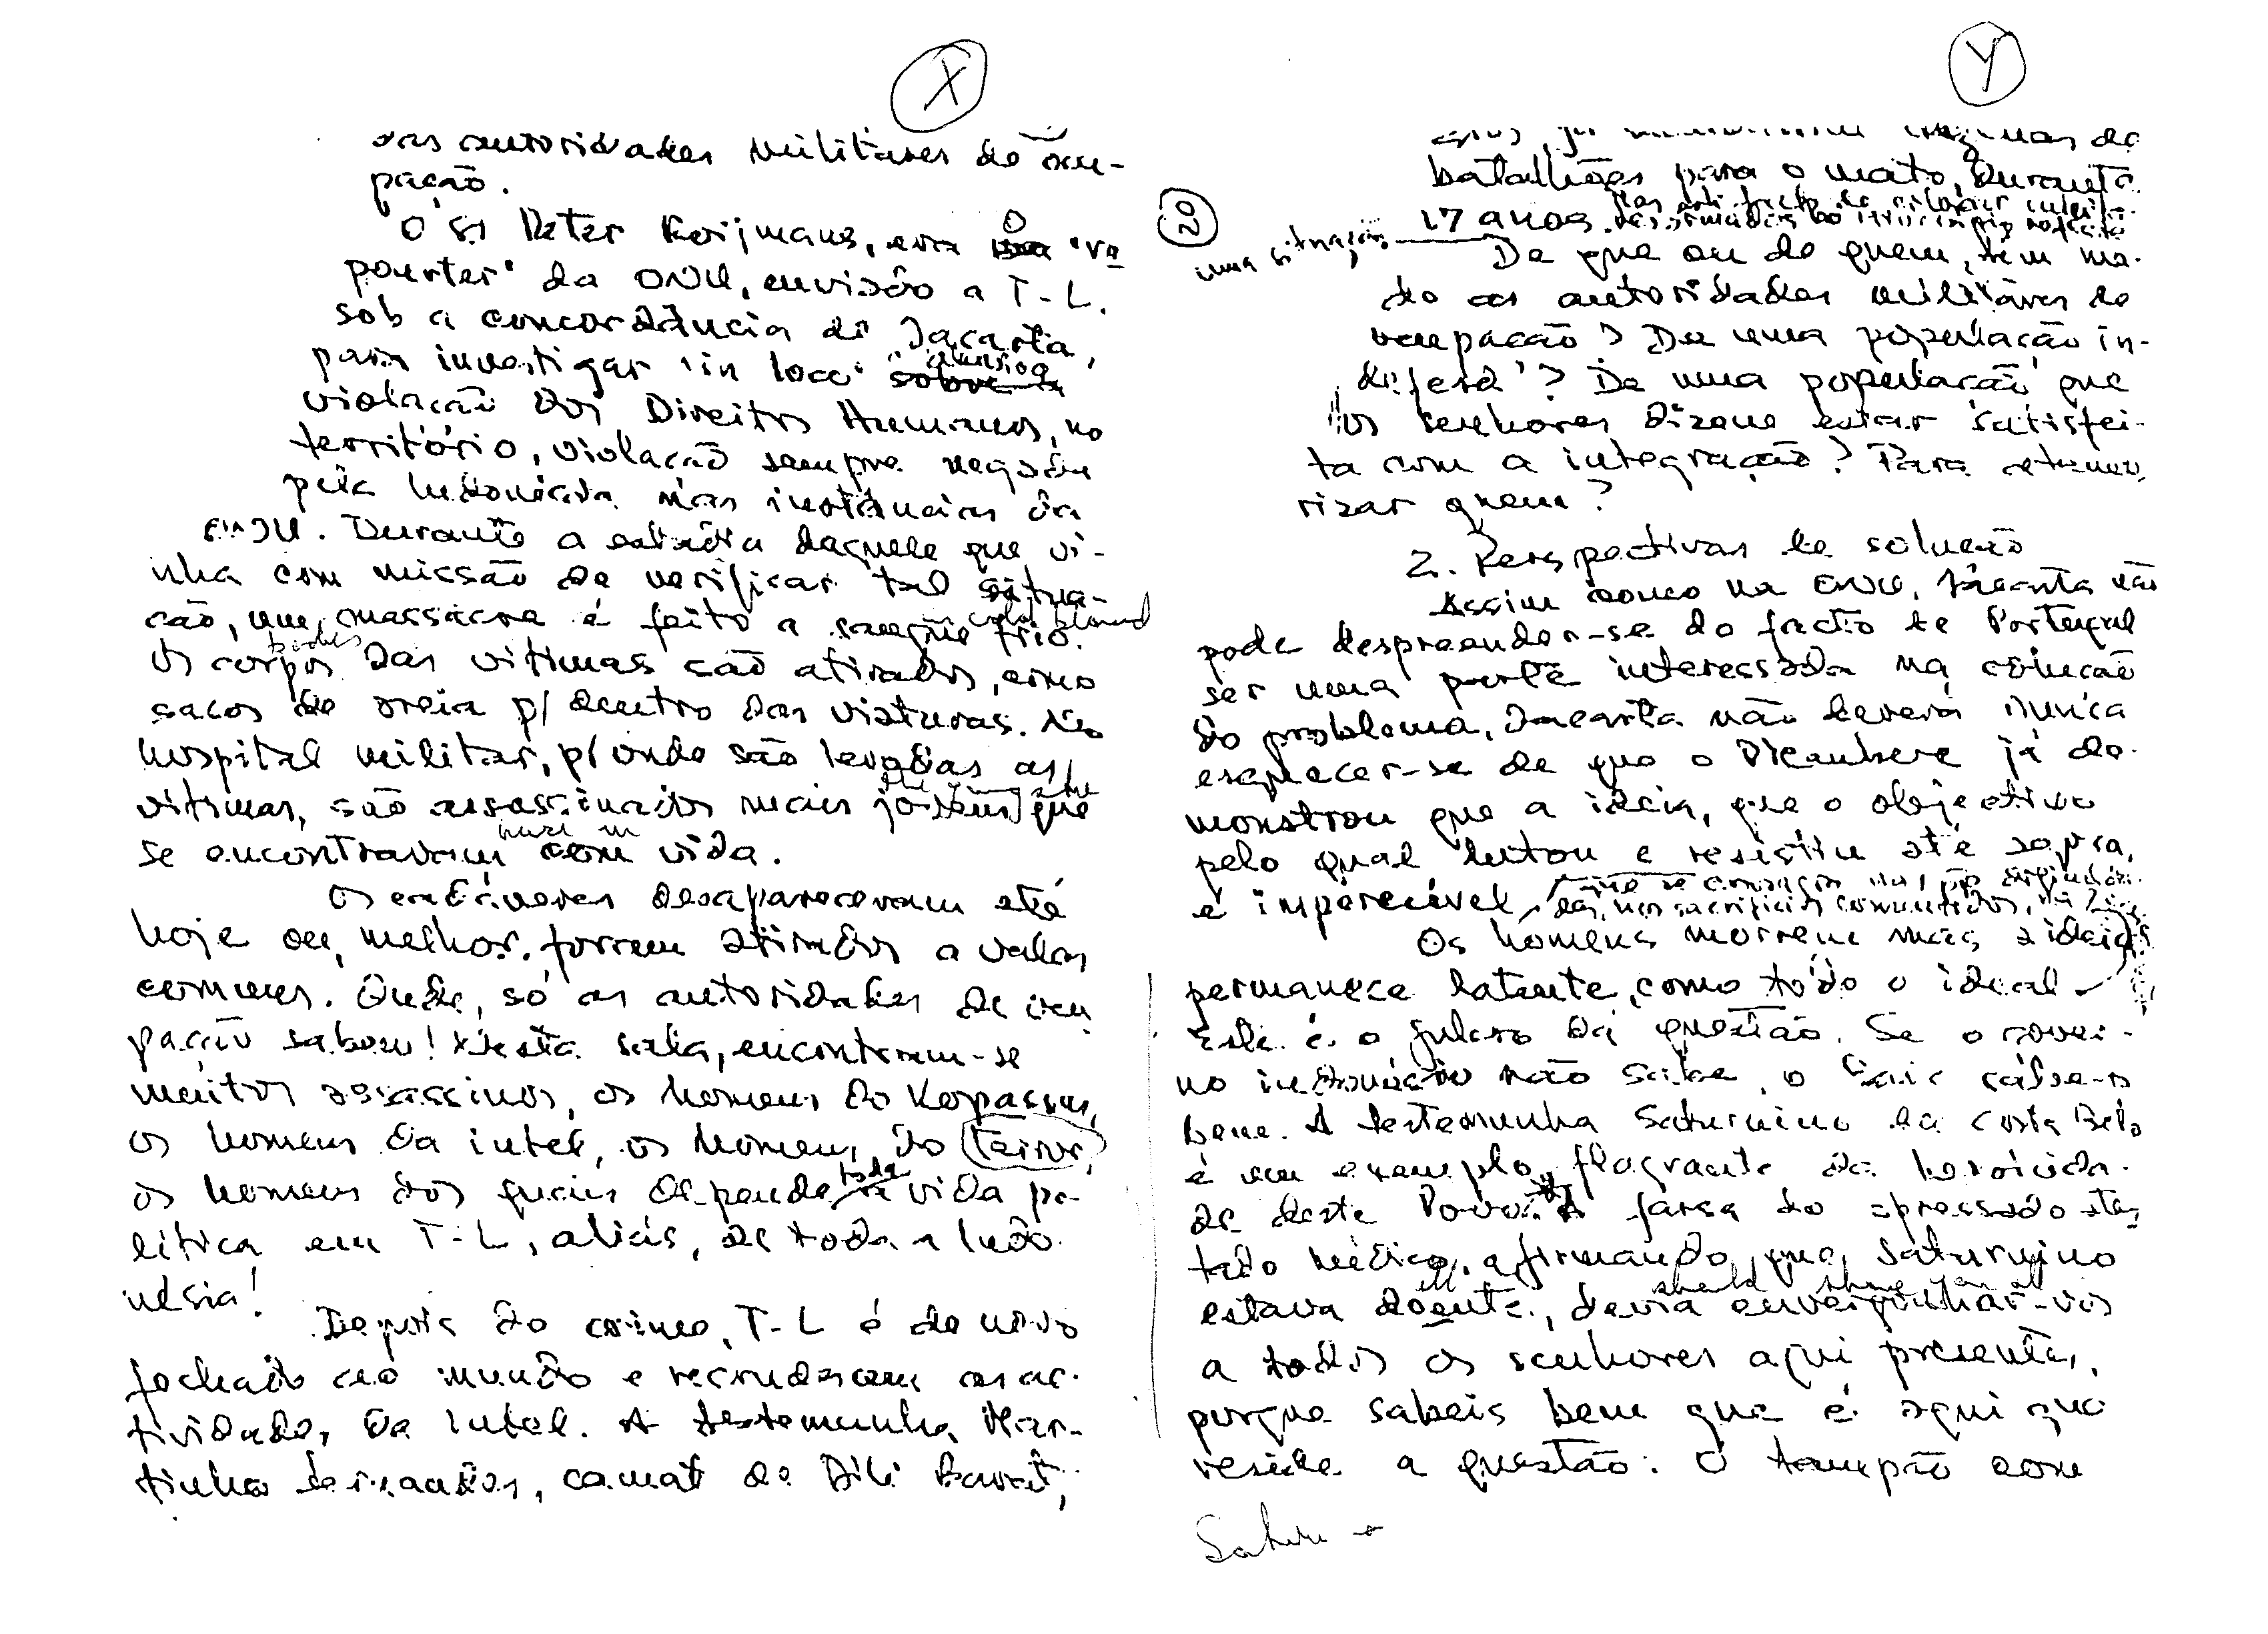 X
das autoridades militares de ocu-
pação.
O Sr Peter Kooijmans, era o "ra
pourter" da ONU, enviado a T-L.
sob a concordância de Jacarta,
para investigar 'in loco'
violação dos Direitos Humanos, no
território, violação sempre negada
pela Indonésia nas instâncias da
ONU. Durante a estadia daquele que vi-
nha com missão de verificar tal situa-
ção, um massacre é feito a sangue frio. cold blood
bodies
Os corpos das vítimas são atirados, como
sacos de areia p/ dentro das viaturas. No
hospital militar, p/ onde são levadas as
vítimas, são assassinados mais jovens que
se encontravam com vida.
Os cadáveres desapareceram até
hoje ou, melhor, foram atirados a valas
comuns. Onde, só as autoridades de ocu
pação sabem! Nesta sala, encontram-se
muitos assassinos, os homens do Kopassus,
os homens da intel, os homens do
os homens dos quais depende toda vida po-
lítica em T-L, aliás, de toda a Indo-
nésia!
Depois do crime, T-L é de novo
fechado ao mundo e recrudescem as ac-
tividades da Intel. A testemunha Mar-
tinho Fernandes, camat de Dili Barat,
Y
batalhões para o mato, durante
2
17 anos.
uma situação
De que ou de quem, têm me-
do as autoridades militares de
ocupação? De uma população in-
defesa? De uma população que
os senhores dizem estar satisfei-
ta com a integração? Para atemo-
rizar quem?
2. Perspectivas de solução
Assim como na ONU, Jacarta não
pode despreender-se do facto de Portugal
ser uma parte interessada na solução
do problema, Jacarta não deverá nunca
esquecer-se de que o Maubere já de-
monstrou que a ideia, que o objectivo
pelo qual lutou e resistiu até agora,
é imperecível
Os homens morrem mas a ideia
permanece latente, como todo o ideal
Este é o fulcro da questão. Se o gover-
no indonésio não sabe, o sabe-o
bem. A testemunha Saturnino da Costa Belo
é um exemplo flagrante da heroicida-
de deste Povo. A farsa do apressado ates
tado médico, afirmando que Saturnino
ill should shame you all
estava doente, devia envergonhar-vos
a todos os senhores aqui presentes,
porque sabeis bem que é aqui que
reside a questão. O tampão com